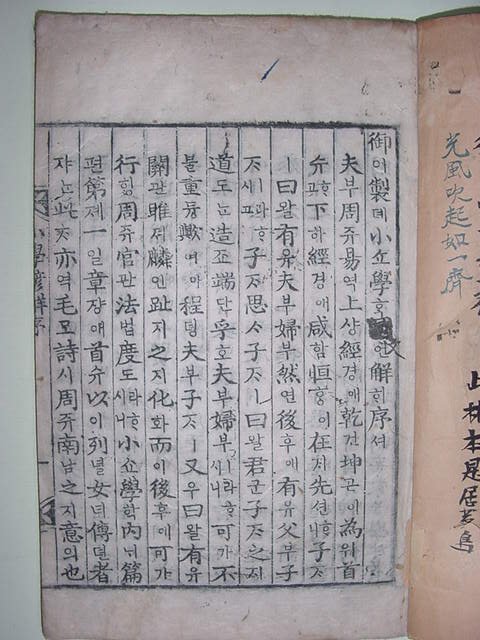 光風吹起如一
此冊本是居
御어製졔小쇼學ᄒᆞᆨ언解ᄒᆡ序셔
夫부周쥬易역上샹經경애乾건坤곤이為위首
슈ᄒᆞ고下하經경애咸함恒ᄒᆞᆼ이在ᄌᆡ先션ᄒᆞ니子ᄌᆞ
ㅣ曰왈有유夫부婦부然연後후에有유父부子
ᄌᆞㅣ라ᄒᆞ시고子ᄌᆞ思ᄉᆞ子ᄌᆞㅣ曰왈君군子ᄌᆞ之지
道도ᄂᆞᆫ造조端단乎호夫부婦부ㅣ라ᄒᆞ시니可가不
블重듕歟여아程뎡夫부子ᄌᆞㅣ又우曰왈有유
關관雎져麟인趾지之지化화而이後후에可가
行ᄒᆡᆼ周쥬官관法법度도ㅣ라ᄒᆞ시니小쇼學ᄒᆞᆨ內ᄂᆡ篇
편第뎨一일章쟝애首슈以이列녈女녀傳뎐者
쟈ᄂᆞᆫ此ᄎᆞ亦역毛모詩시周쥬南남之지意의也
小學諺解序